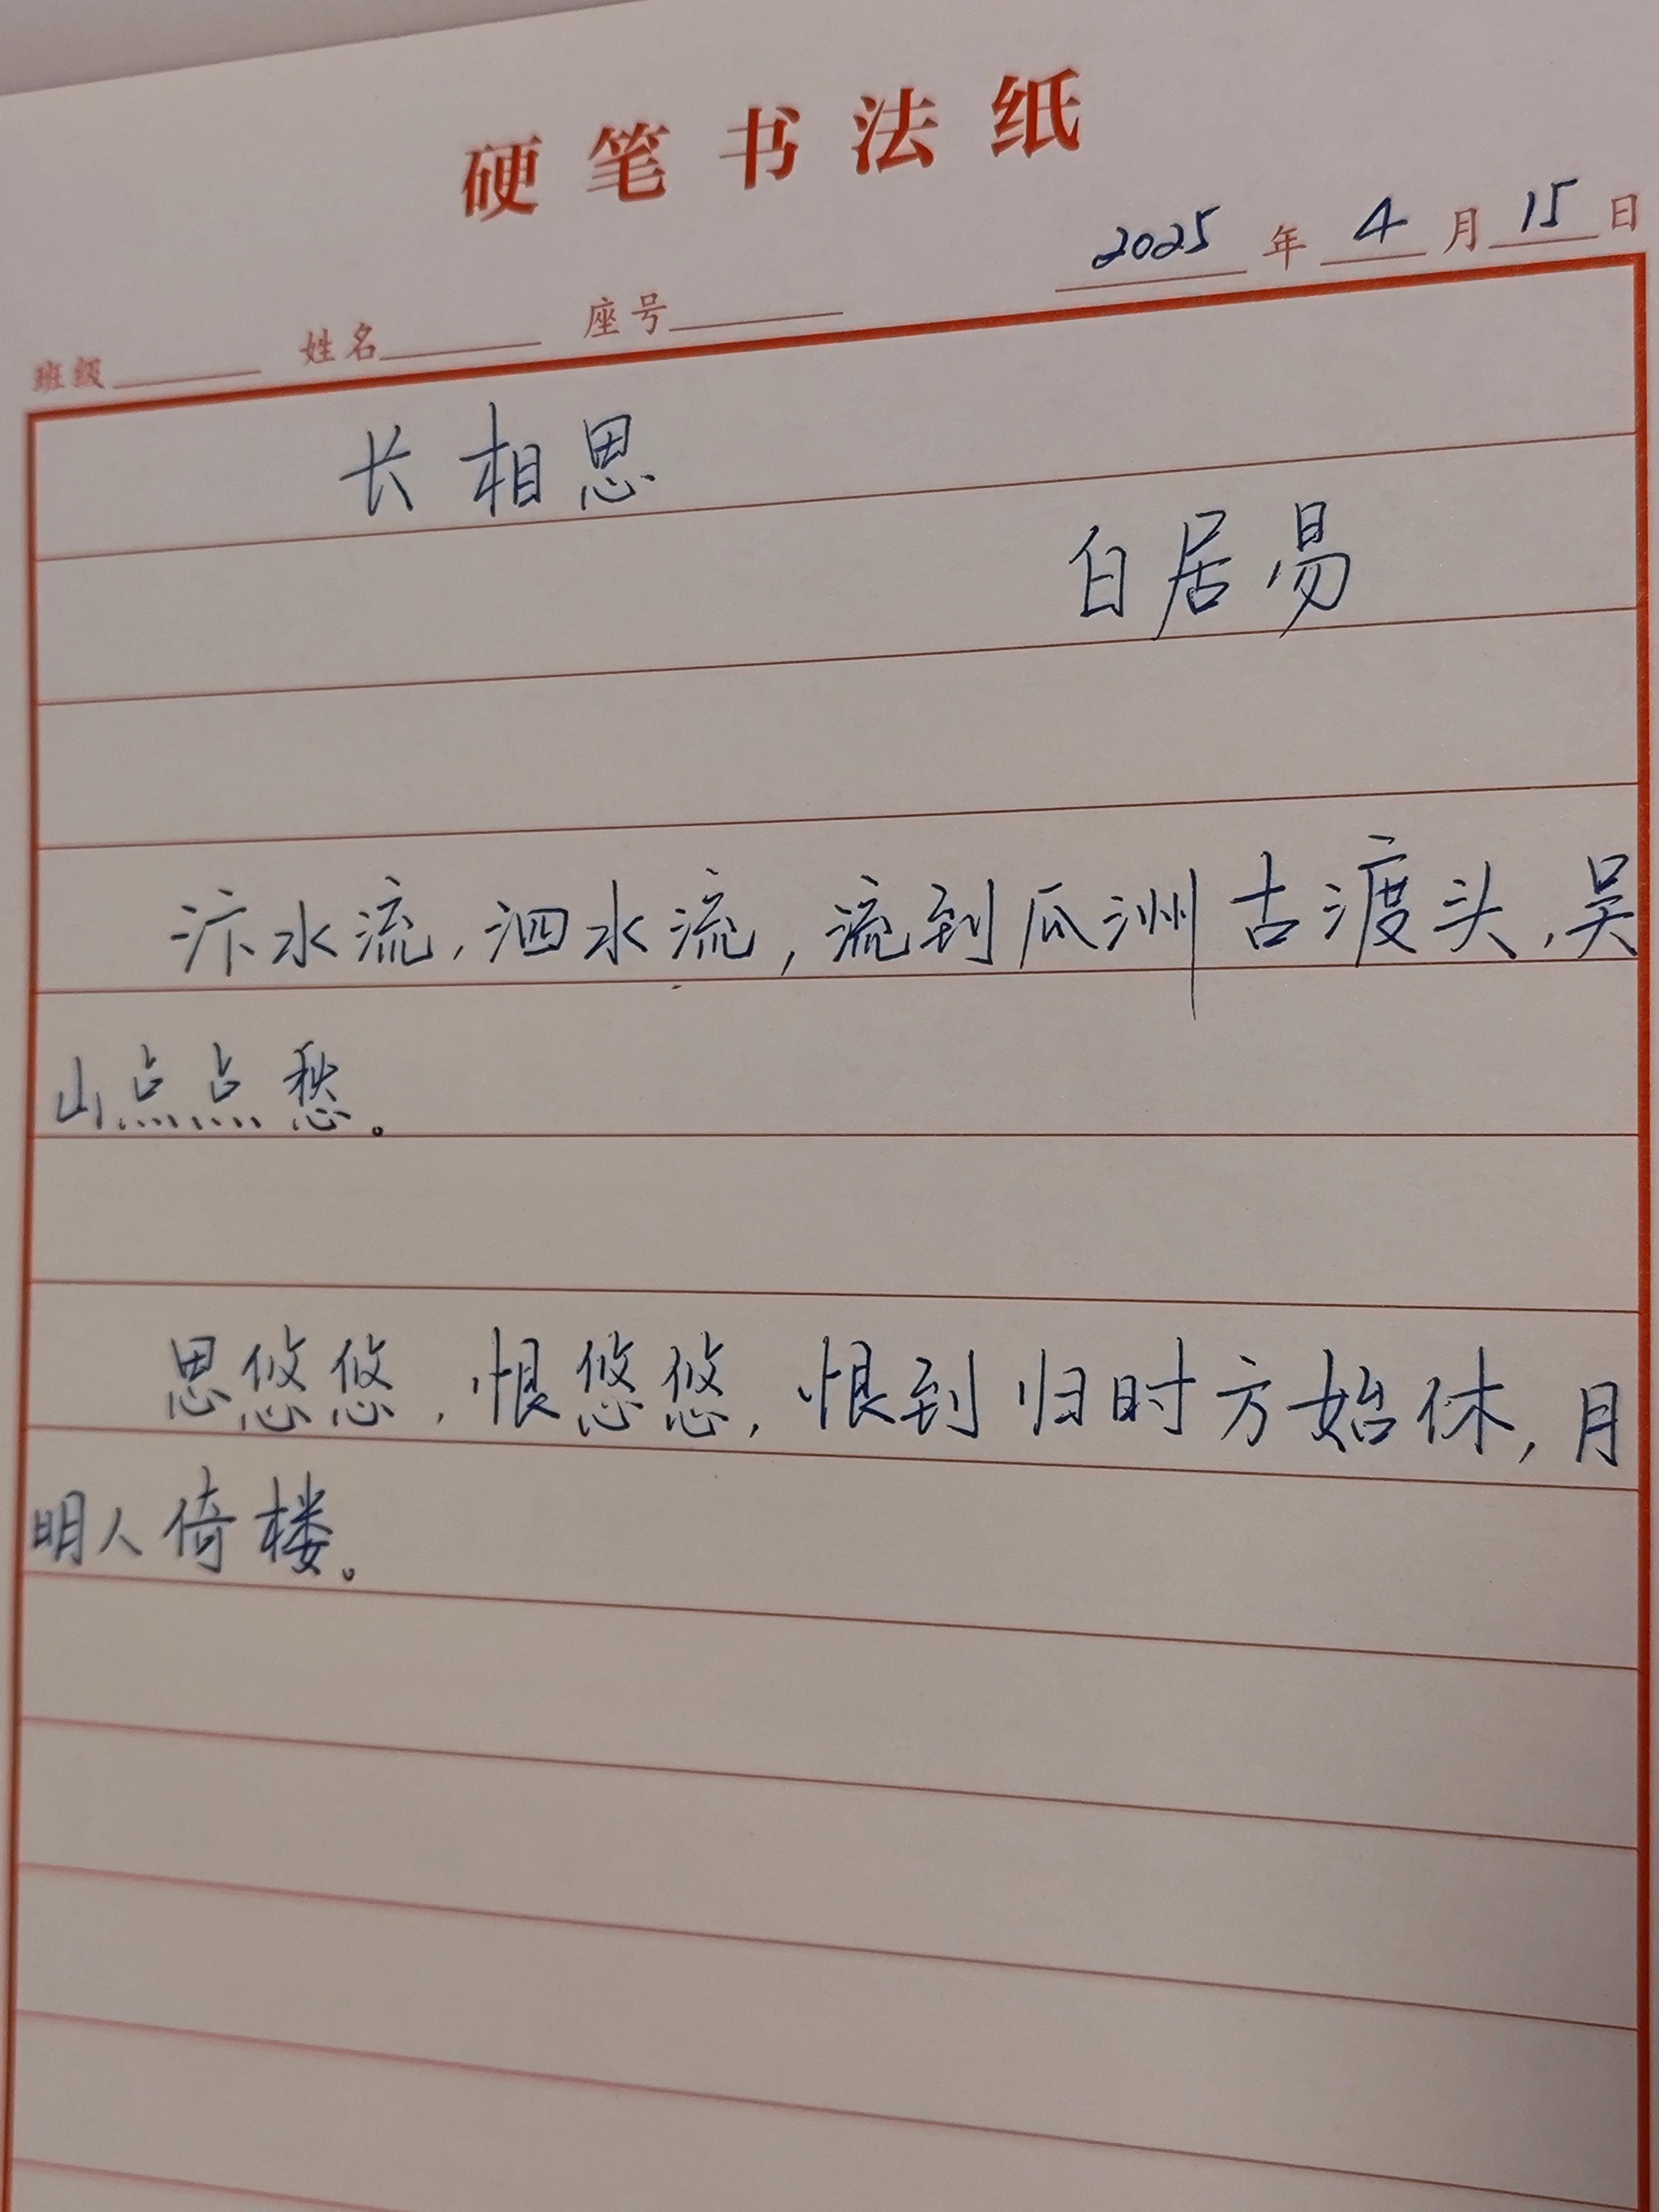 硬笔书法纸
2025年4月15日
班级 姓名 座号
长相思
白居易
汴水流,泗水流,流到瓜洲古渡头,吴
山点点愁。
思悠悠,恨悠悠,恨到归时方始休,月
明人倚楼。